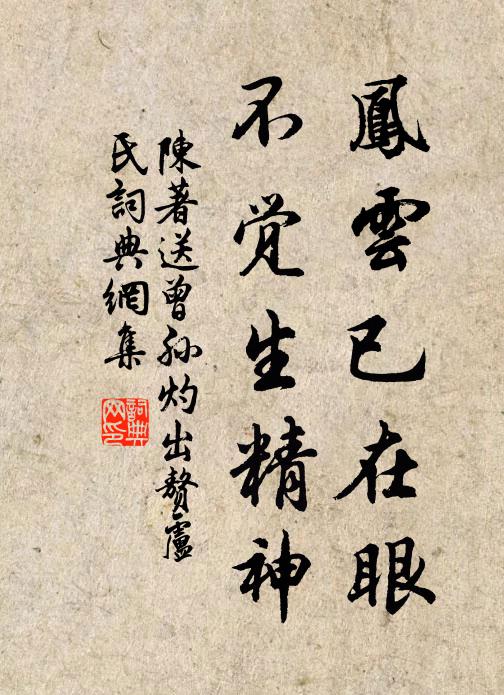 鳳雲已在眼
不觉生精神
陳著送曾孫灼出贅盧
氏詞典網集
詞典网印